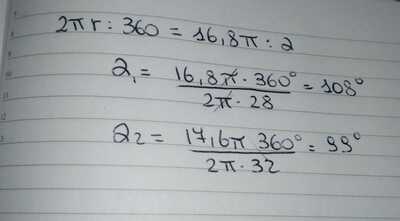 2πr : 360 = 16,8π : 2
2₁ = 16,8π · 360° / 2π · 28 = 108°
22 = 17,6π 360° / 2π · 32 = 99°